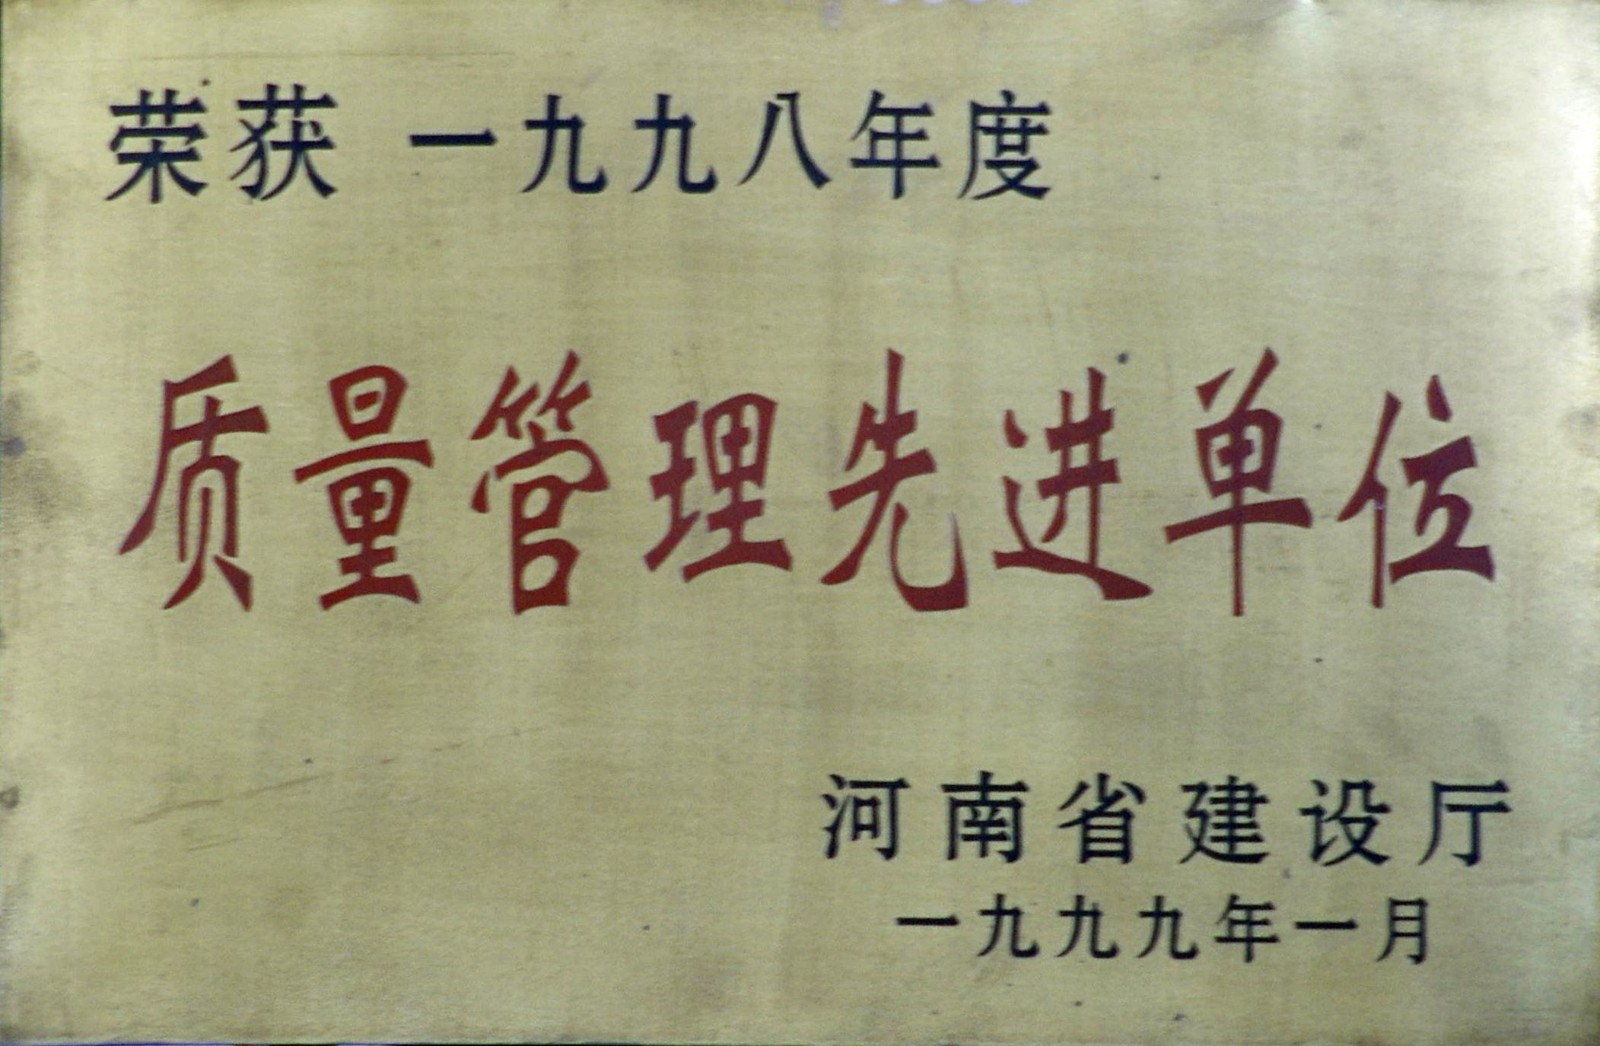 荣获 一九九八年度
质量管理先进单位
河南省建设厅
一九九九年一月